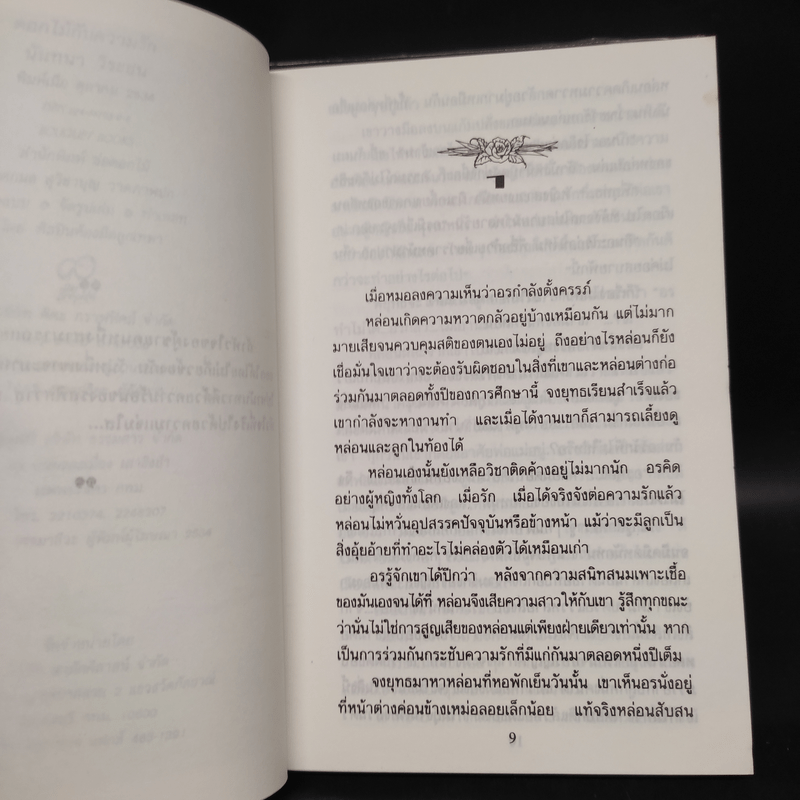 ๑
เมื่อหมอลงความเห็นว่าอรกำลังตั้งครรภ์
หล่อนเกิดความหวาดกลัวอยู่บ้างเหมือนกัน แต่ไม่มาก
มายเสียจนควบคุมสติของตนเองไม่อยู่ ถึงอย่างไรหล่อนก็ยัง
เชื่อมั่นใจเขาว่าจะต้องรับผิดชอบในสิ่งที่เขาและหล่อนต่างก่อ
ร่วมกันมาตลอดทั้งปีของการศึกษานี้ จงยุทธเรียนสำเร็จแล้ว
เขากำลังจะหางานทำ และเมื่อได้งานเขาก็สามารถเลี้ยงดู
หล่อนและลูกในท้องได้
หล่อนเองนั้นยังเหลือวิชาติดค้างอยู่ไม่มากนัก อรคิด
อย่างผู้หญิงทั้งโลก เมื่อรัก เมื่อได้จริงจังต่อความรักแล้ว
หล่อนไม่หวั่นอุปสรรคปัจจุบันหรือข้างหน้า แม้ว่าจะมีลูกเป็น
สิ่งอุ้ยอ้ายที่ทำอะไรไม่คล่องตัวได้เหมือนเก่า
อรรู้จักเขาได้ปีกว่า หลังจากความสนิทสนมเพาะเชื้อ
ของมันเองจนได้ที่ หล่อนจึงเสียความสาวให้กับเขา รู้สึกทุกขณะ
ว่านั่นไม่ใช่การสูญเสียของหล่อนแต่เพียงฝ่ายเดียวเท่านั้น หาก
เป็นการร่วมกันกระชับความรักที่มีแก่กันมาตลอดหนึ่งปีเต็ม
จงยุทธมาหาหล่อนที่หอพักเย็นวันนั้น เขาเห็นอรนั่งอยู่
ที่หน้าต่างค่อนข้างเหม่อลอยเล็กน้อย แท้จริงหล่อนสับสน
9